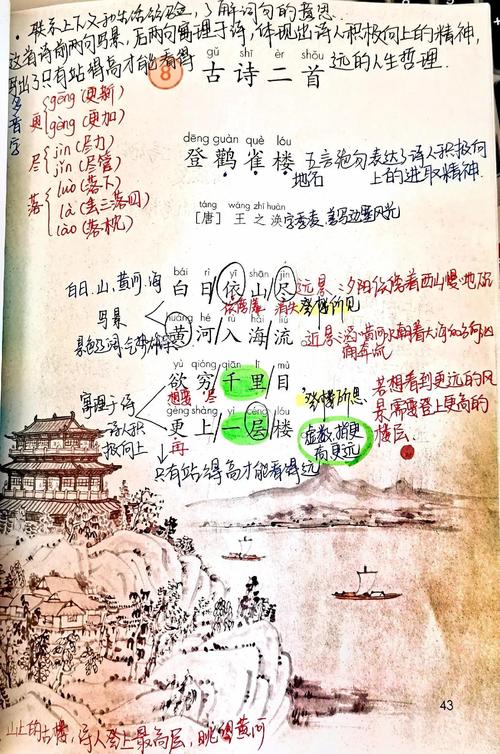 联系上下文和生活经验，了解词句的意思.
这首诗前两句写景，后两句寓理于诗，体现出诗人积极向上的精神，
写出了只有站得高才能看得远的人生哲理.
gǔ shī èr shǒu
8 古诗二首
多音字
更 gēng (更新)
gèng (更加)
尽 jìn (尽力)
jǐn (尽管)
落 luò (落下)
là (丢三落四)
lào (落枕)
dēng guàn què lóu
登鹳雀楼
地名
五言绝句 表达了诗人积极向
上的进取精神.
táng wáng zhī huàn
[唐] 王之涣
字季凌, 善写边塞风光
白日.山,黄河.海
写景
景色辽阔 气势雄浑
bái rì yī shān jìn
白日/依/山/尽
依傍 消失
远景: 夕阳依傍着西山慢慢地沉
登楼所见
huáng hé rù hǎi liú
黄河/入海流
近景: 滔滔黄河水朝着大海的方向汹
涌奔流
yù qióng qiān lǐ mù
欲穷/千里目
想要 尽
寓理于诗
诗人积
极向上
登楼所思
若想看到更远的风
景需要登上更高的
楼层.
gèng shàng yì céng lóu
更上/一层楼
再
虚数,指更
高更远
只有站得高才能看得远
43
山上的古楼,诗人登上最高层,眺望黄河